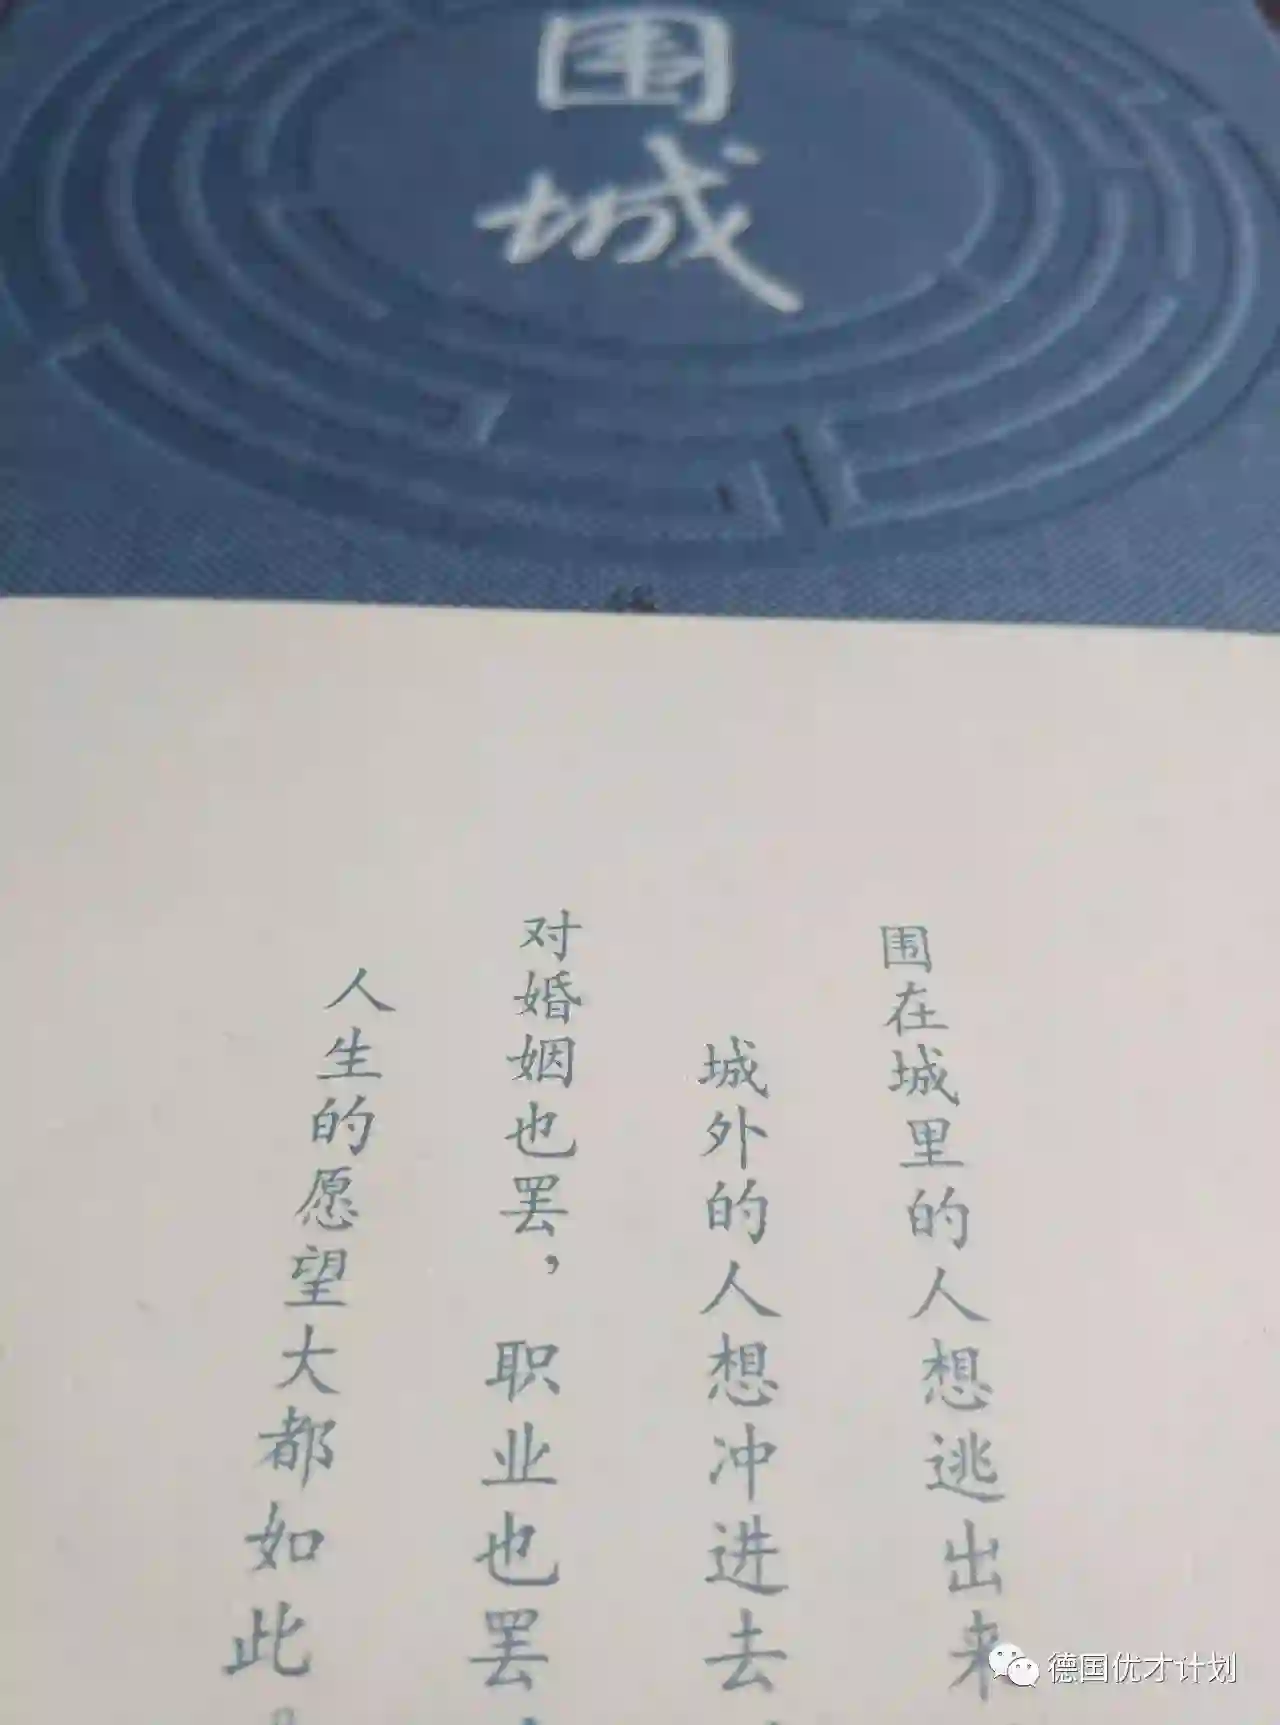 围
城
围在城里的人想逃出来，
城外的人想冲进去，
对婚姻也罢，职业也罢，
人生的愿望大都如此。
德国优才计划